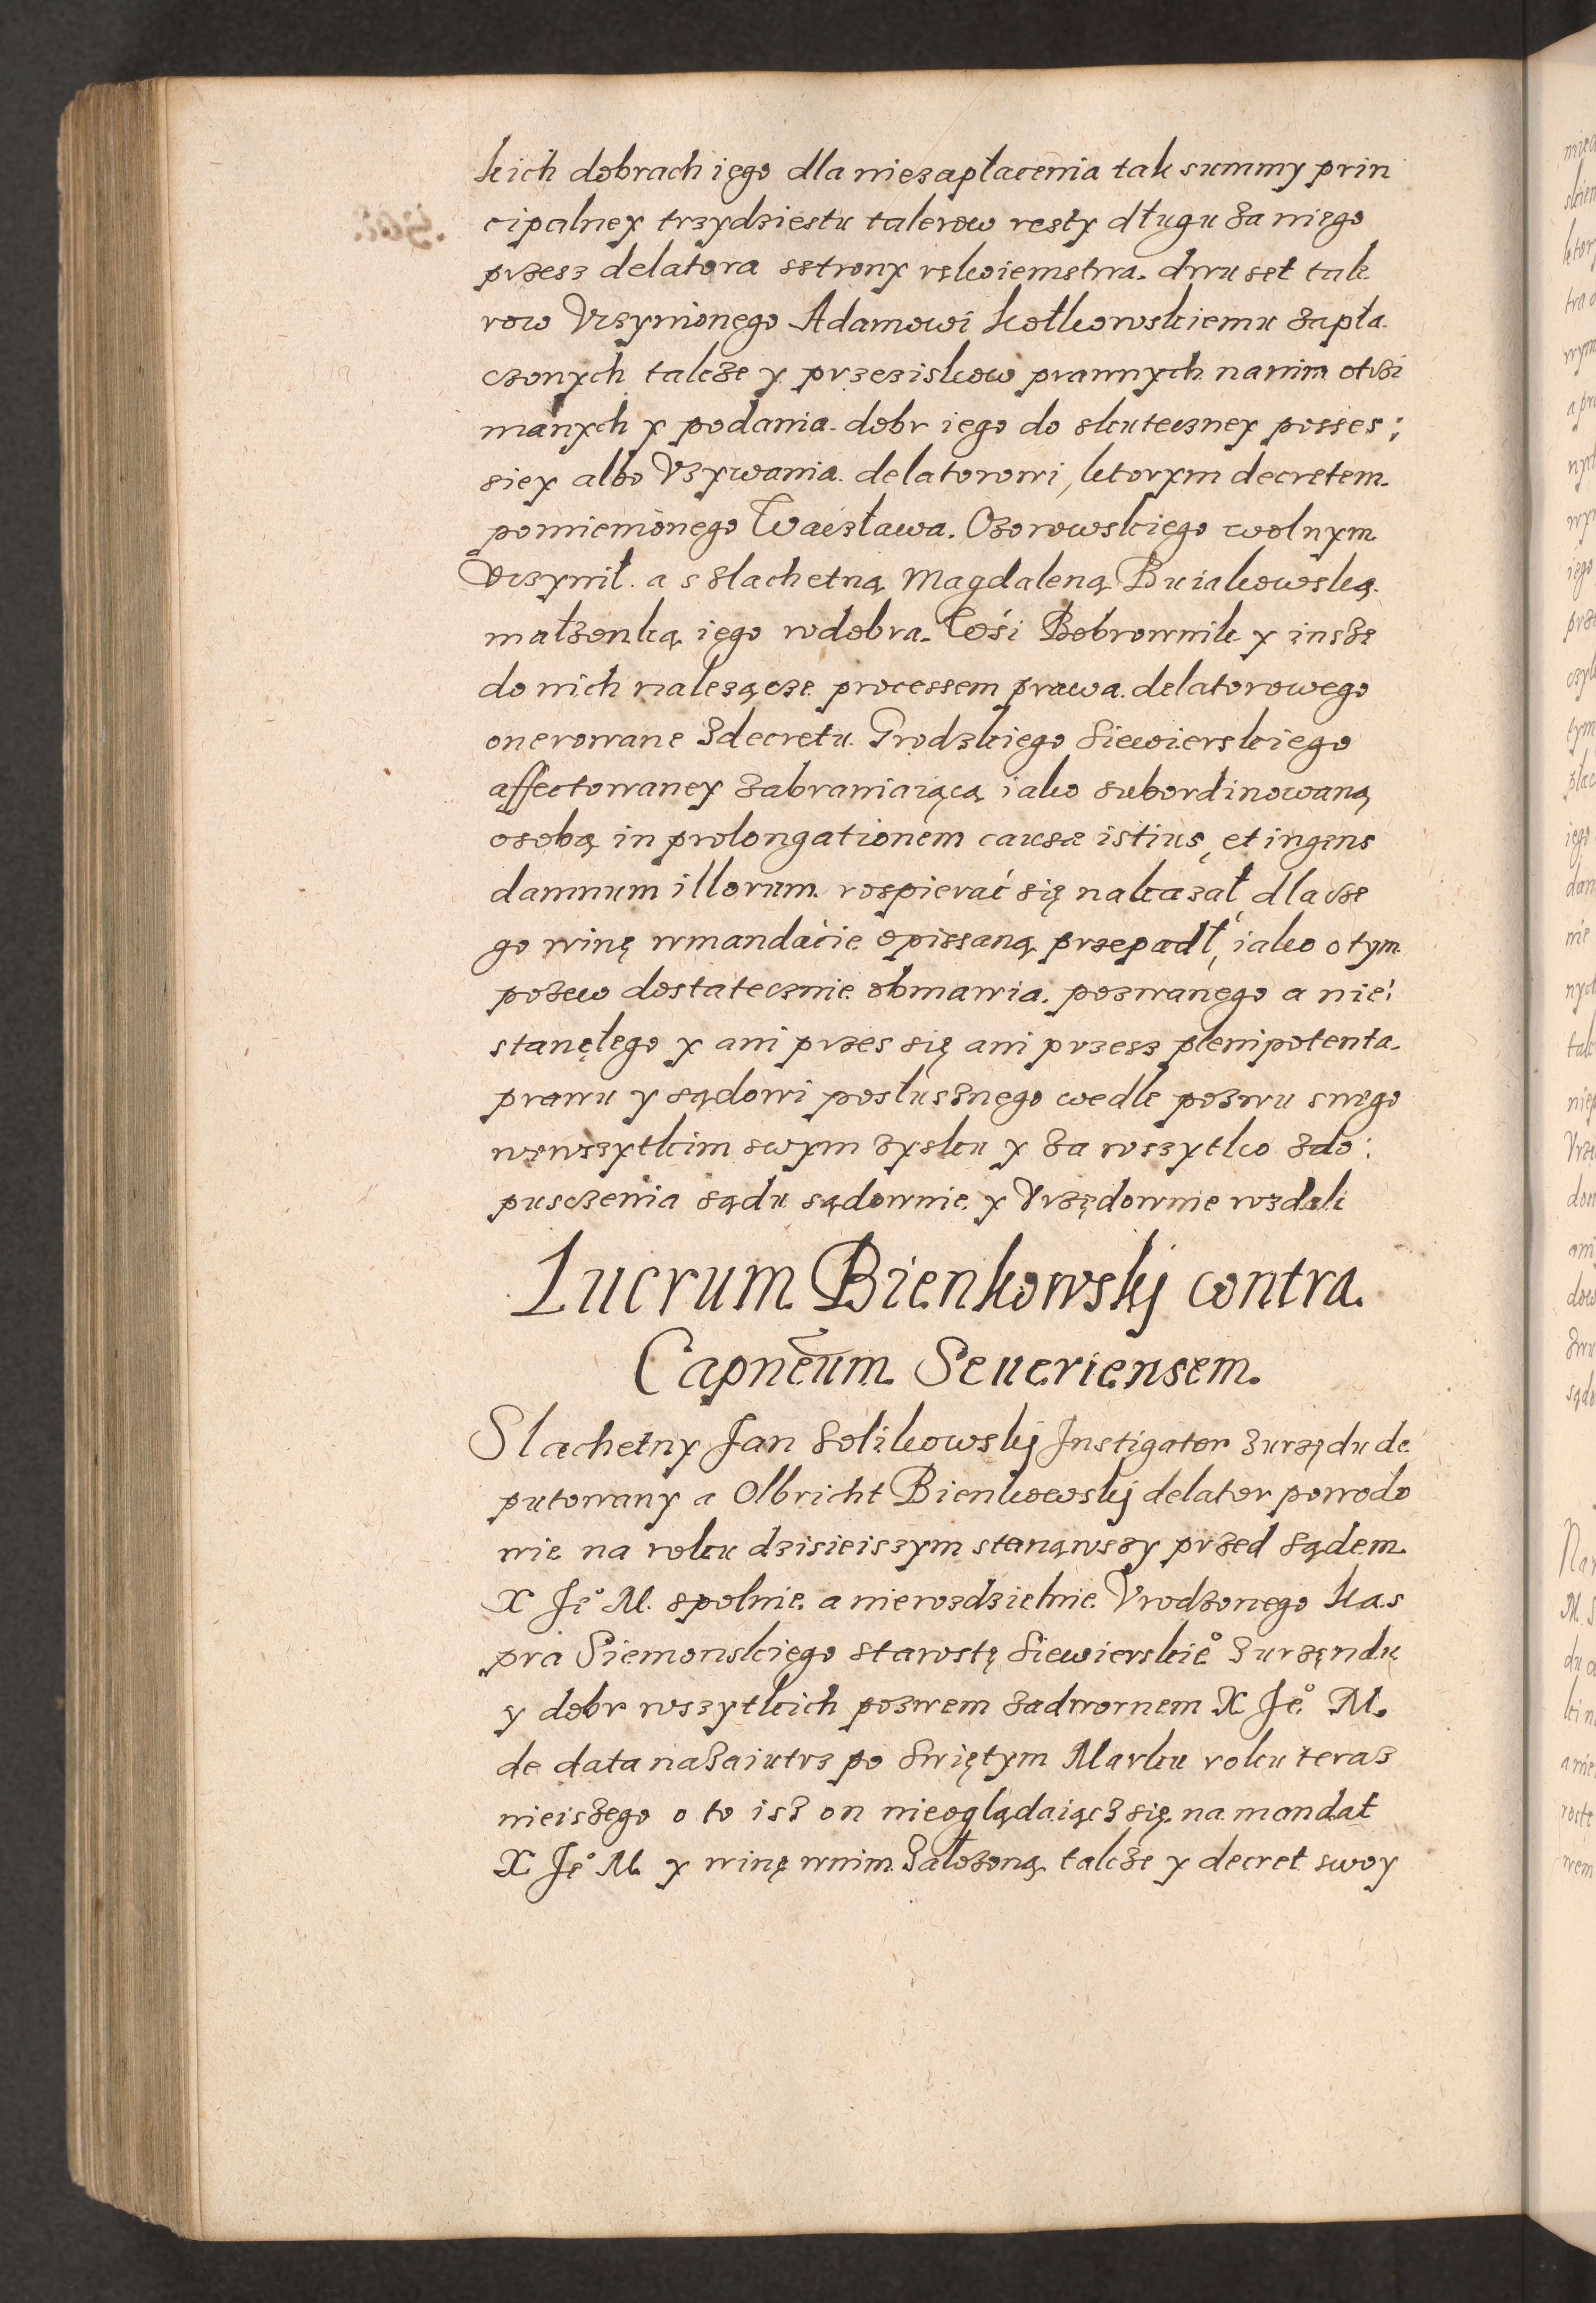 kich dobrach iego dla niezapłacenia tak summy prin
cipalney trzydziestu talerow resty długu za niego
przesz delatora sstrony rękoiemstwa. dwu set tale
row Vczynionego Adamowi Kołkowskiemu zapła.
czonych takze y przeziskow prawnych nanim otrzi
manych y podania. dobr iego do skuteczney posses:
siey albo Vzywania. delatorowi, ktorym decretem.
pomienionego Wacsława. Ozorowskiego wolnym
Vczynił. a s slachetną Magdaleną Buiakowską.
małzonką iego wdobra. Wśi Bobrownik y insze
do nich nalezącze processem prawa. delatorowego
onerowane zdecretu. Grodzkiego Siewierskiego
affectowaney zabraniaiącą iako subordinowaną
osobą in prolongationem causæ istius, et ingens
damnum illorum. rospierać się nakazał dlacze
go winę wmandacie opissaną przepadł, iako o tym
pozew dostatecznie obmawia. pozwanego a nie:
stanęłego y ani przes się ani przesz plenipotenta.
prawu y sądowi posłusznego wedle pozwu swego
wewszytkim swym zysku y za wszytko zdo:
pusczenia sądu sądownie y Vrzędownie wzdali
Lucrum Bienkowskj contra.
Capneum Seueriensem.
Slachetny Jan Solikowskj Jnstigator zurzędu de
putowany a Olbricht Bienkowskj delator powodo
wie na roku dzisieiszym stanąwszy przed sądem
X Je° M. spolnie. a nierozdzielnie. Vrodzonego Kas
pra Siemonskiego starostę Siewierskie° zurzęndu
y dobr wszytkich pozwem zadwornem X Je° M.
de data nazaiutrz po Swiętym Marku roku teraz
nieiszego o to isz on nieoglądaiącz się na mandat
X Je° M y winę wnim załozoną takze y decret swoy